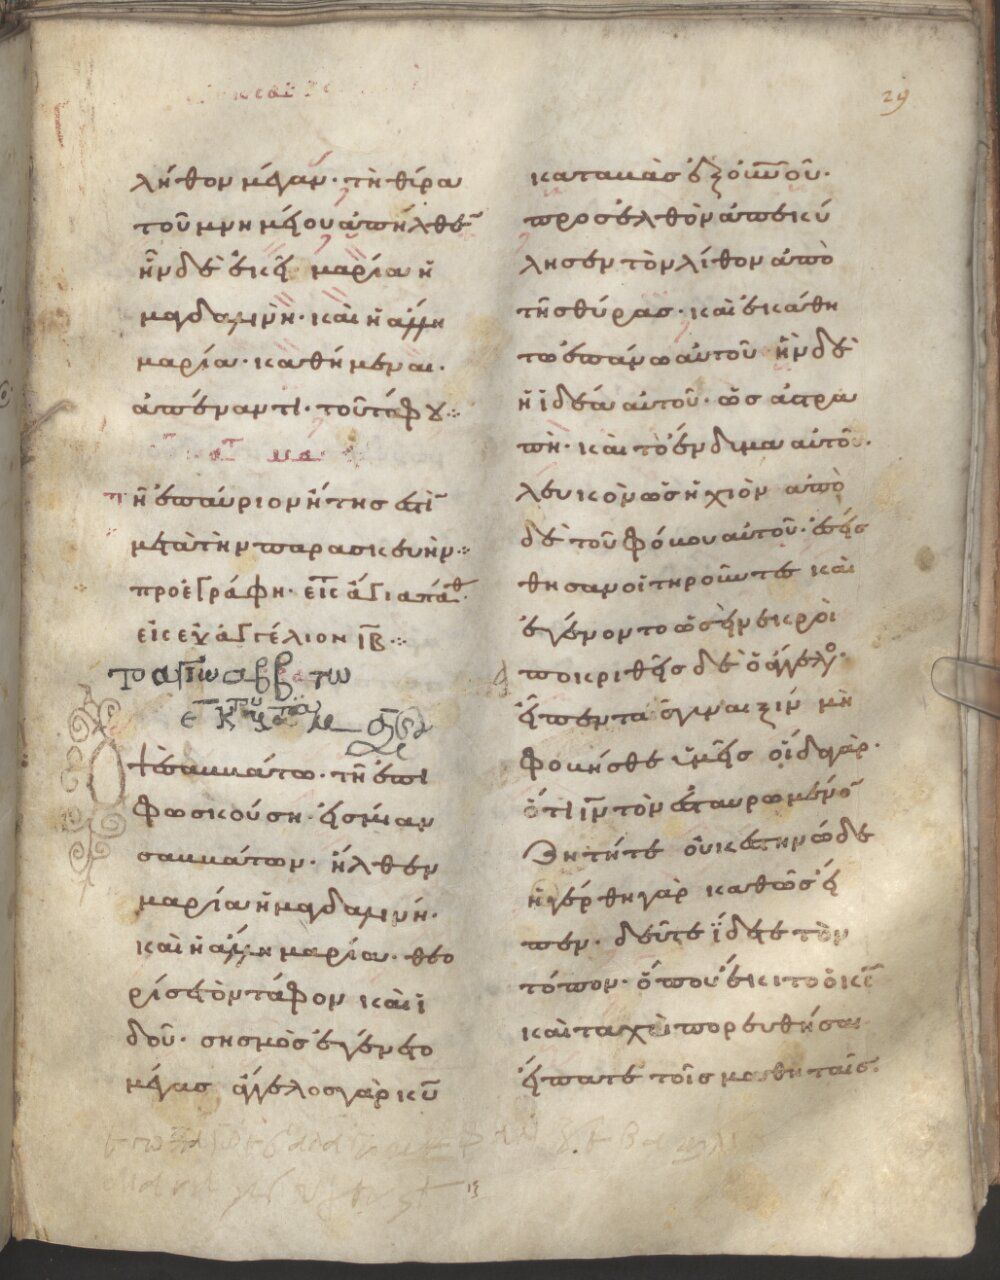 29
λήθον μέγαν· τὴ θύρα
τοῦ μνημείου ἀπῆλθε̄
ἦν δὲ ἐκεῖ μαρία ἡ
μαγδαληνὴ· καὶ ἡ ἄλλη
μαρία· καθήμεναι·
ἀπέναντι· τοῦ τάφȣ
τῆ ἐπαύριον ἥτης ἐστὶ̄
μετὰ τὴν παρασκευήν
προεγράφη· εἰς ἅγια πάθ
εἰς εὐαγγέλιον ιβ
τω αγιω σαββ τω
ὀψὲ σαββάτω· τῆ ἐπι
φωσκούση· εἰς μίαν
σαββάτων· ἦλθεν
μαρία ἡ μαγδαληνή·
καὶ ἡ ἄλλη μαρία· θεο
ρίσε τὸν τάφον καὶ ἰ
δοῦ· σησμὸς ἐγένετο
μέγας ἄγγελος γὰρ κῡ
καταβὰς ἐξ οὐ̄νοῦ·
προσελθὸν ἀπεκύ
λησεν τὸν λίθον ἀπὸ
τῆς θύρας· καὶ ἐκάθη
το ἐπάνω αὐτοῦ ἦν δὲ
ἡ ἰδέα αὐτοῦ· ὡς ἀστρα
πὴ· καὶ τὸ ἔνδιμα αὐτοῦ·
λευκὸν ὡς ἡ χιὸν ἀπὸ
δὲ τοῦ φόβου αὐτοῦ· ἐσείσ
θησαν οἱ τηροῦντες καὶ
ἐγένοντο ὡσεὶ νεκροὶ
ποκριθεὶς δὲ ὁ ἄγγελο·
εἶπεν ταῖς γυναιξίν μὴ
φοβήσθε ὑμεῖς οἶδα γὰρ·
ὅτι ιν̄ τὸν ἐσταυρωμένο̄
ζητῆτε οὐκ ἔστην ὧδε
ἠγέρθη γὰρ καθὼς εἶ
πεν· δεῦτε ἴδετε τὸν
τόπον· ὅπου ἔκιτο ὁ κς̄
καὶ ταχὺ πορευθῆσαι
εἴπατε τοῖς μαθηταῖς